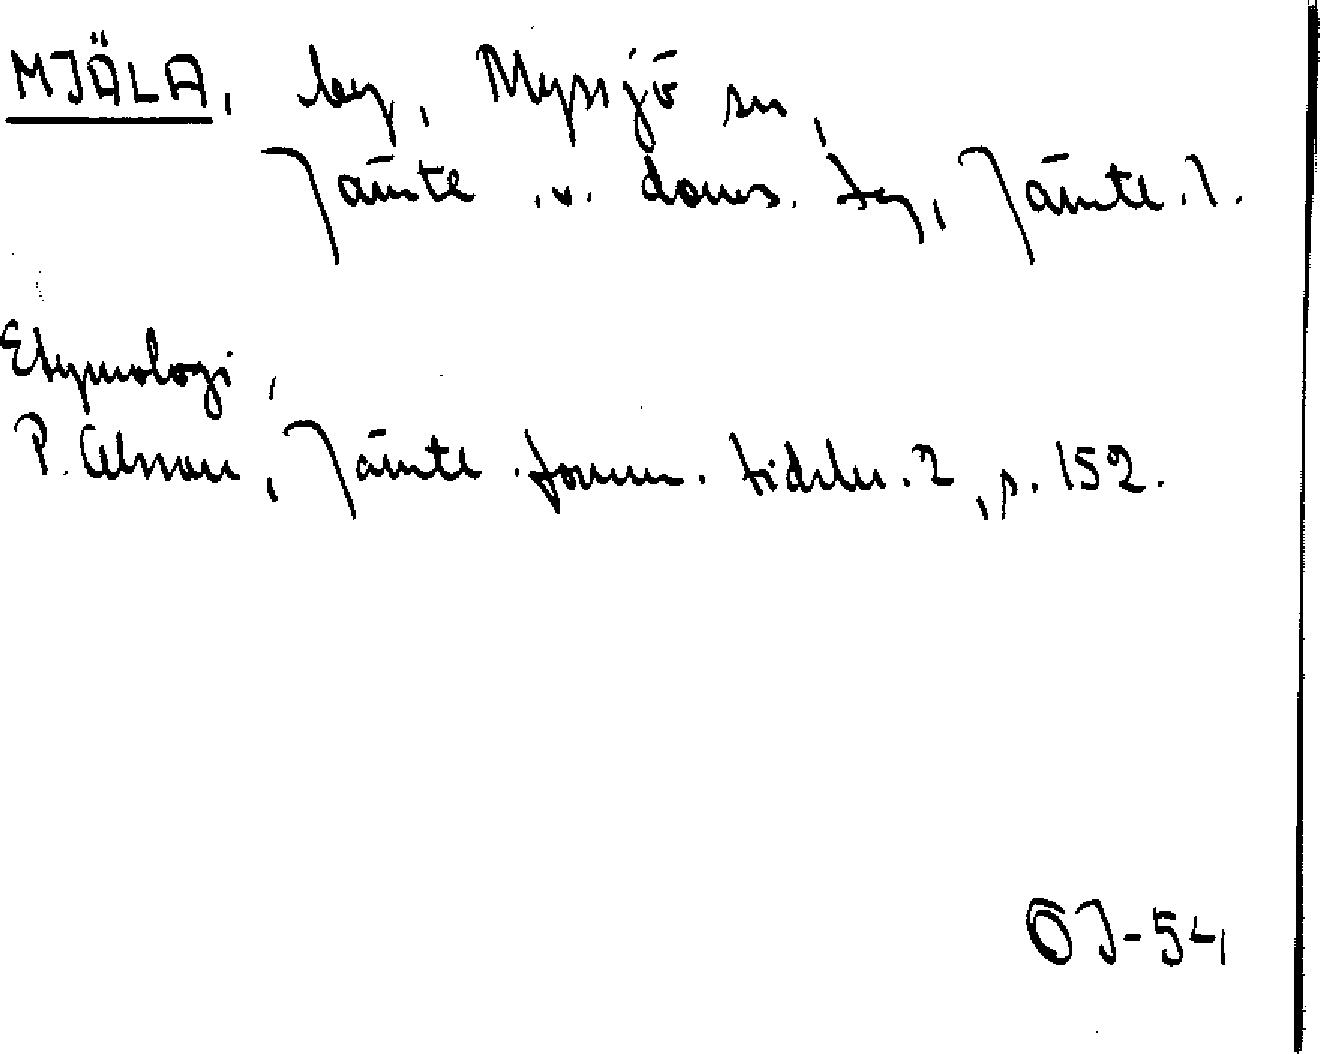 MJÄLA, by, Myssjö sn,
Jämtl. v. doms. tg, Jämtl. l.
Etymologi,
P. Alsnau, Jämtl. fornm. tidskr. 2, s. 152.
ÖJ-54